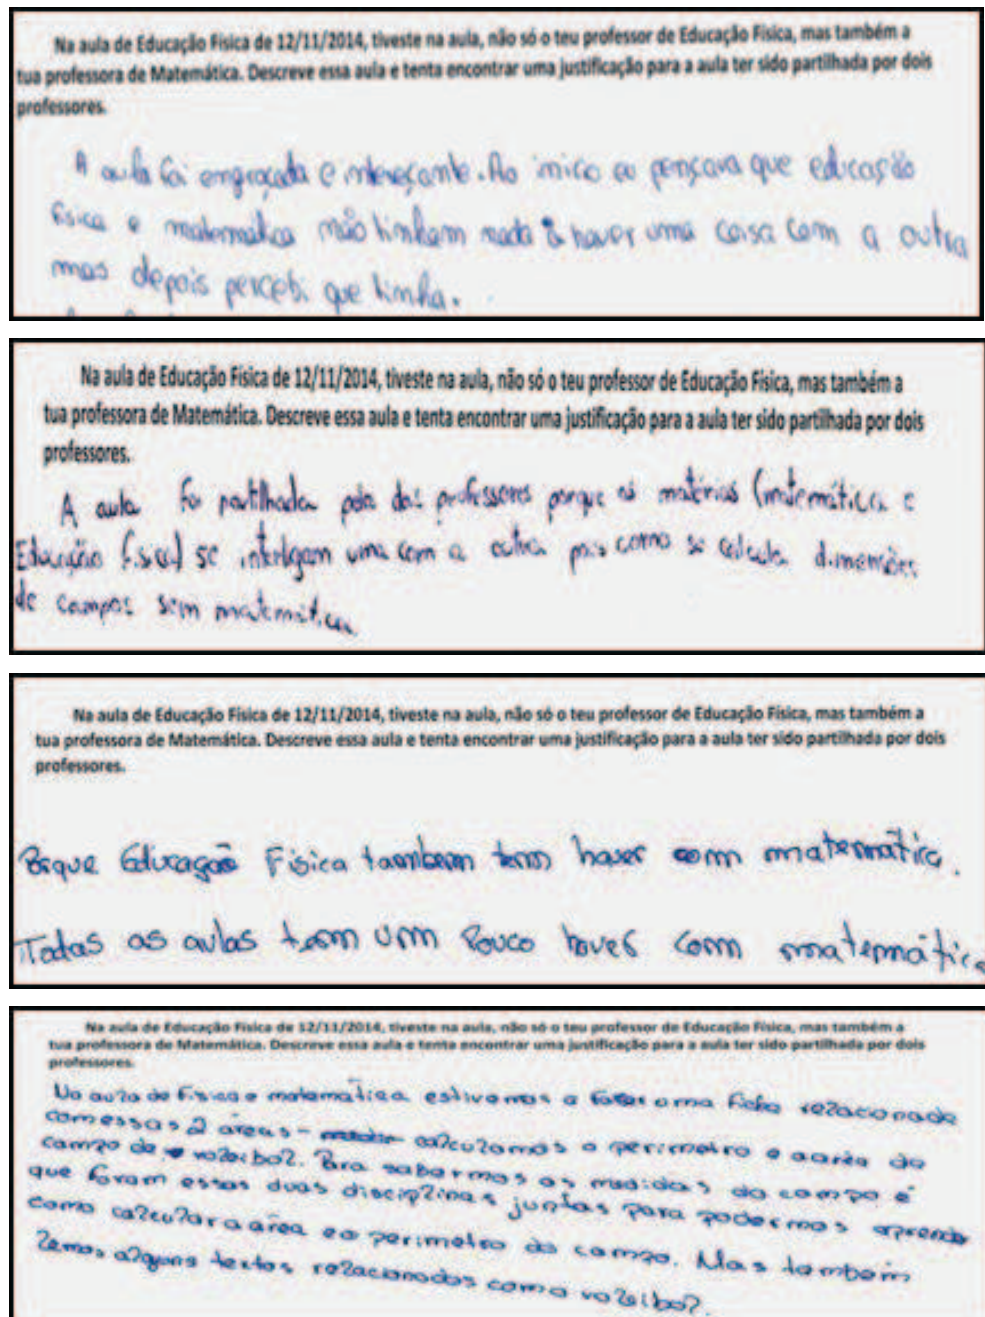 Na aula de Educação Física de 12/11/2014, tiveste na aula, não só o teu professor de Educação Física, mas também a
tua professora de Matemática. Descreve essa aula e tenta encontrar uma justificação para a aula ter sido partilhada por dois
professores.
A aula foi engraçada e intereçante. Ao inico eu pençava que educação
física e matemática não tinham nada a haver uma coisa com a outra
mas depois percebi que tinha.
Na aula de Educação Física de 12/11/2014, tiveste na aula, não só o teu professor de Educação Física, mas também a
tua professora de Matemática. Descreve essa aula e tenta encontrar uma justificação para a aula ter sido partilhada por dois
professores.
A aula foi partilhada pelo dois professores porque as matérias (matemática e
Educação física) se interligam uma com a outra pois como se calcula dimensões
de campos sem matemática
Na aula de Educação Física de 12/11/2014, tiveste na aula, não só o teu professor de Educação Física, mas também a
tua professora de Matemática. Descreve essa aula e tenta encontrar uma justificação para a aula ter sido partilhada por dois
professores.
Porque Educação Física tambem tem haver com matemática.
Todas as aulas tem um Pouco haver com matemática
Na aula de Educação Física de 12/11/2014, tiveste na aula, não só o teu professor de Educação Física, mas também a
tua professora de Matemática. Descreve essa aula e tenta encontrar uma justificação para a aula ter sido partilhada por dois
professores.
Na aula de Física e matemática estivemos a fazer uma ficha relacionada
com essas 2 áreas - calculamos o perimetro e a aréa do
campo de voleibol. Para sabermos as medidas do campo é
que foram essas duas disciplinas juntas para podermos aprender
como calcular a área e o perimetro do campo. Mas também
lemos alguns textos relacionados com o voleibol.